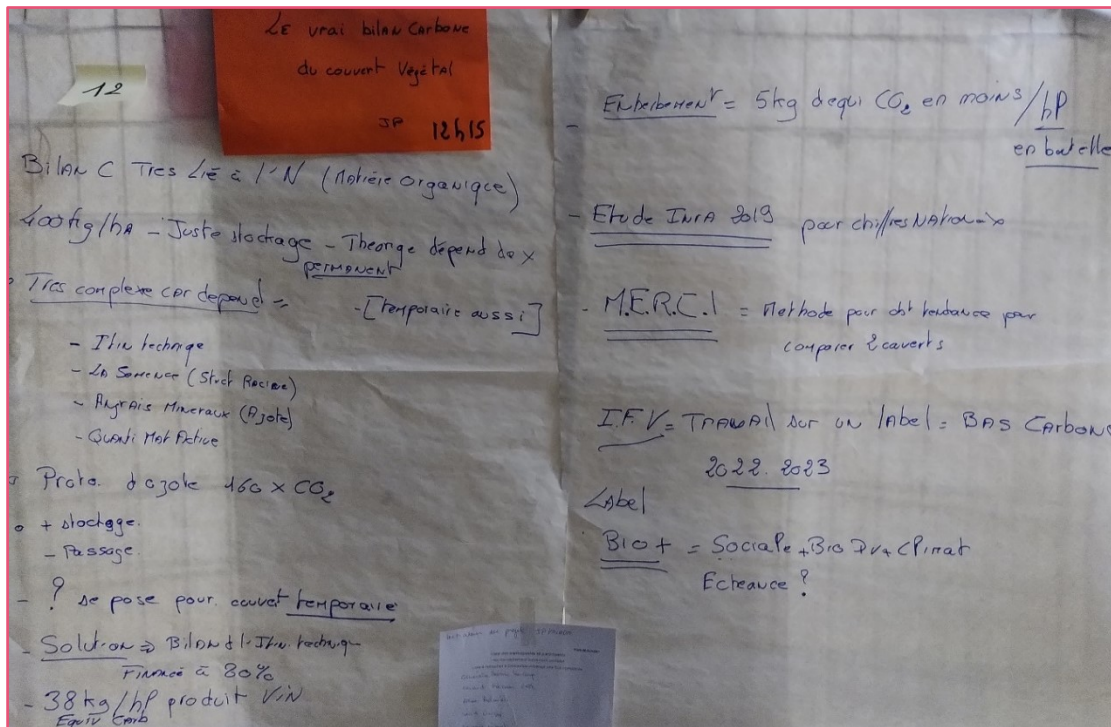 12
LE vrai bilan Carbone
du couvert Végétal
JP 12h15
Bilan C Tres Lié à l'N (Matière Organique)
400kg/ha - Juste stockage - Theorige dépend de x
permanent
Tres complexe car depend =
- [temporaire aussi]
- Itin technique
- La Semence (Struct Racine)
- Angrais Mineraux (Azote)
- Quanti Mat Active
Proto. d'azote 160 x CO2
+ stockage.
- Passage.
- ? se pose pour couvert temporaire
- Solution => Bilan d l'Itin. technique
Financé à 80%
- 38kg/hl produit Vin
Equiv Carb
- Enherbement = 5kg d'equi CO2 en moins/hl
en bouteille
- Etude Inra 2019 pour chiffres Nationaux
- M.E.R.C.I = Methode pour obt tendance pour
comparer 2 couverts
I.F.V = Travail sur un label = Bas Carbone
2022. 2023
Label
Bio + = Sociale + Bio Div + Climat
Echeance ?